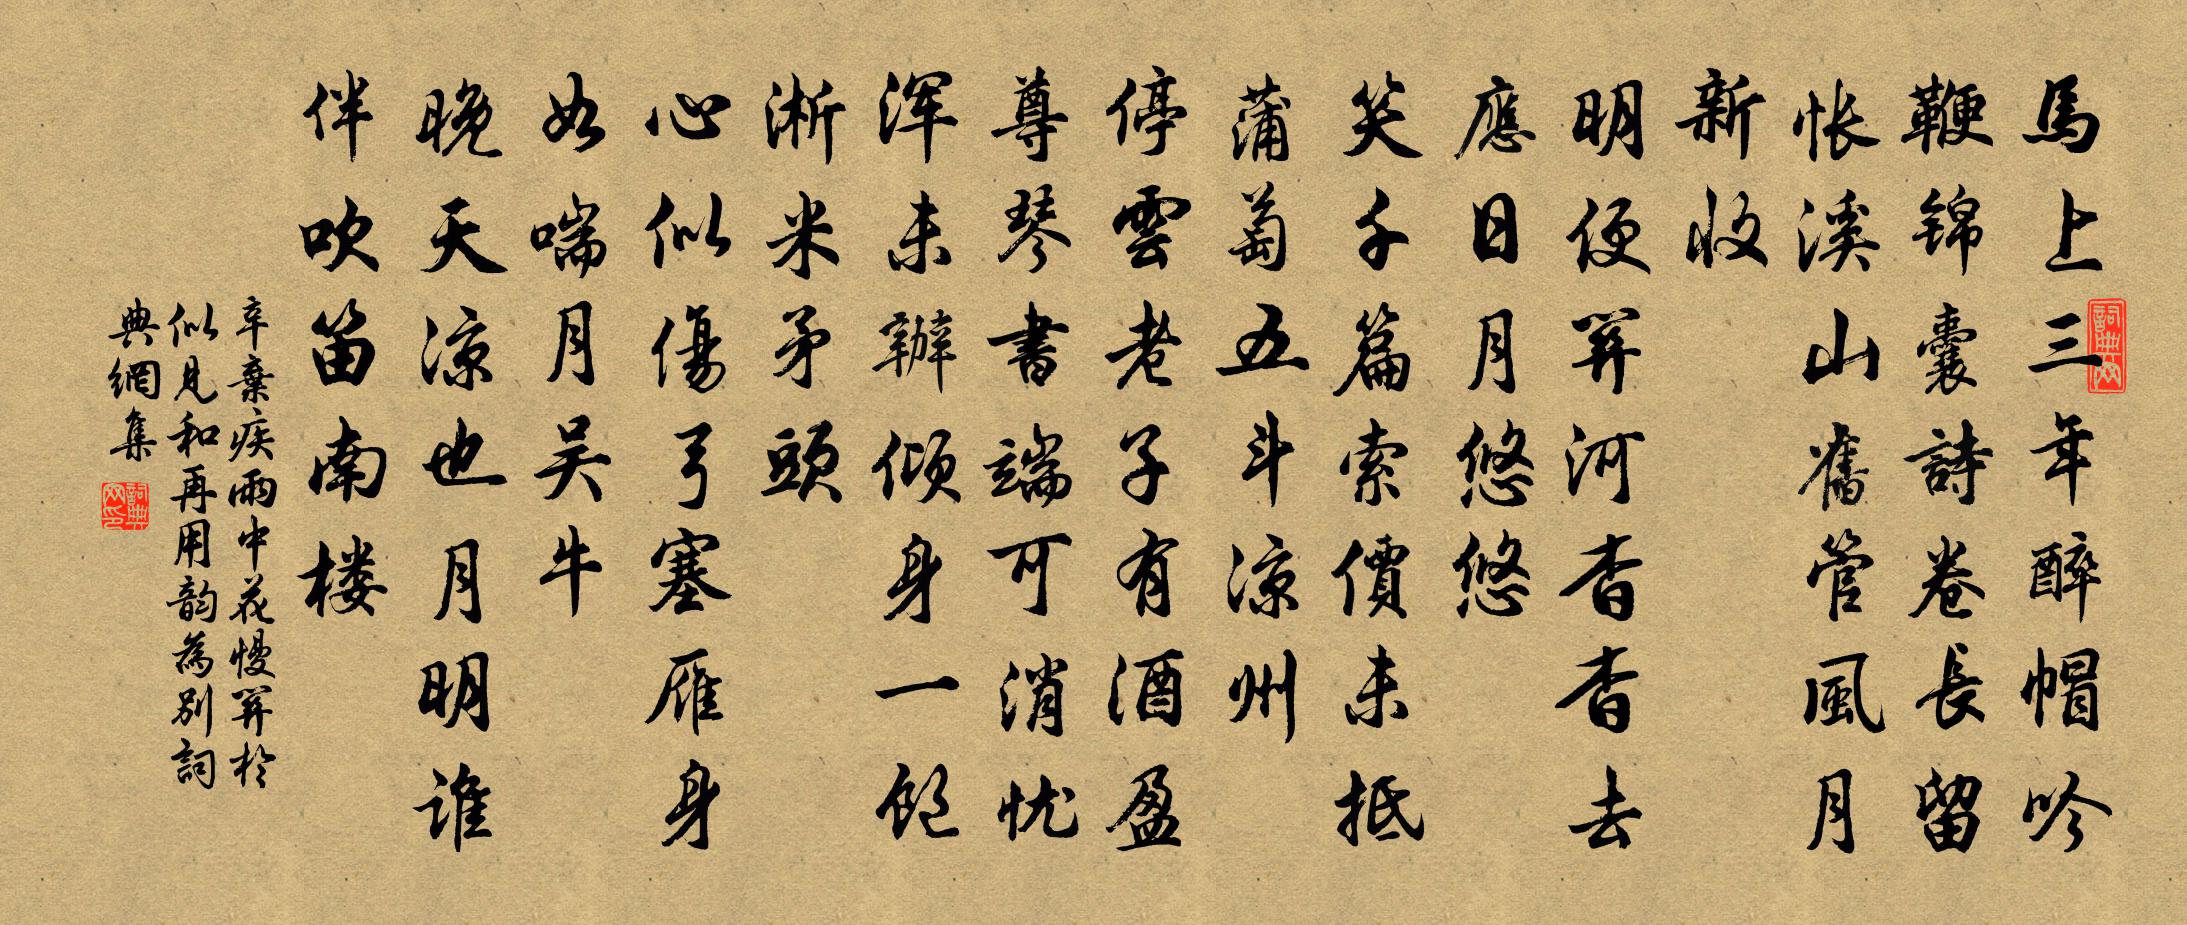 馬上三年醉帽吟
鞭锦囊詩卷長留
怅溪山舊管風月
新收
明便關河杳杳去
應日月悠悠
笑千篇索價未抵
蒲萄五斗涼州
停雲老子有酒盈
尊琴書端可消忧
浑未辦倾身一飽
淅米矛頭
心似傷弓塞雁身
如喘月吴牛
晚天涼也月明誰
伴吹笛南楼
辛棄疾雨中花慢關於
似見和再用韵為別詞
典網集
詞典网
詞典网印